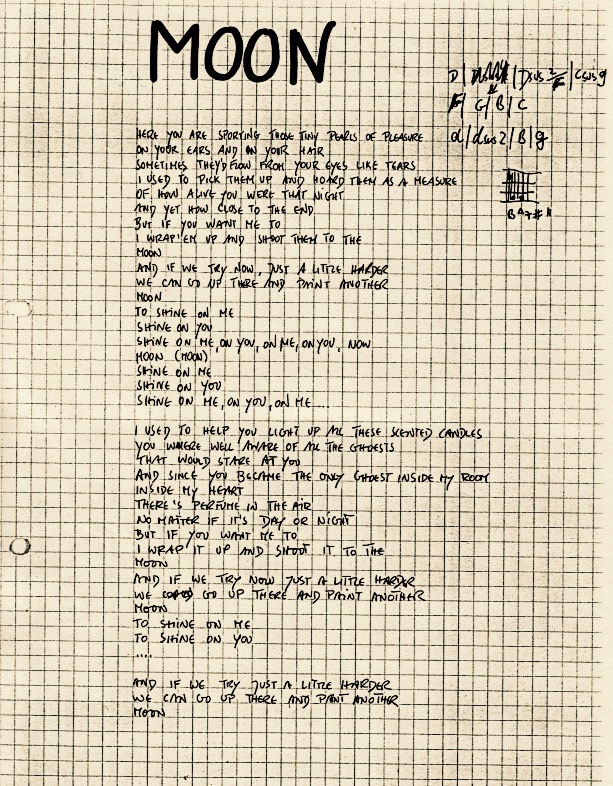 MOON
D | Dsus2 | Csus9
G | B | C
d | dsus2 | B | g
HERE YOU ARE SPORTING THOSE TINY PEARLS OF PLEASURE
ON YOUR EARS AND ON YOUR HAIR
SOMETIMES THEY'D FLOW FROM YOUR EYES LIKE TEARS
I USED TO PICK THEM UP AND HOARD THEM AS A MEASURE
OF HOW ALIVE YOU WERE THAT NIGHT
AND YET HOW CLOSE TO THE END
BUT IF YOU WANT ME TO
I WRAP'EM UP AND SHOOT THEM TO THE
MOON
AND IF WE TRY NOW, JUST A LITTLE HARDER
WE CAN GO UP THERE AND PAINT ANOTHER
MOON
TO SHINE ON ME
SHINE ON YOU
SHINE ON ME, ON YOU, ON ME, ON YOU, NOW
MOON (MOON)
SHINE ON ME
SHINE ON YOU
SHINE ON ME, ON YOU, ON ME....
I USED TO HELP YOU LIGHT UP ALL THESE SCENTED CANDLES
YOU WHERE WELL AWARE OF ALL THE GHOESTS
THAT WOULD STARE AT YOU
AND SINCE YOU BECAME THE ONLY GHOEST INSIDE MY ROOM
INSIDE MY HEART
THERE'S PERFUME IN THE AIR
NO MATTER IF IT'S DAY OR NIGHT
BUT IF YOU WANT ME TO
I WRAP IT UP AND SHOOT IT TO THE
MOON
AND IF WE TRY NOW JUST A LITTLE HARDER
WE GO UP THERE AND PAINT ANOTHER
MOON
TO SHINE ON ME
TO SHINE ON YOU
....
AND IF WE TRY JUST A LITTLE HARDER
WE CAN GO UP THERE AND PAINT ANOTHER
MOON